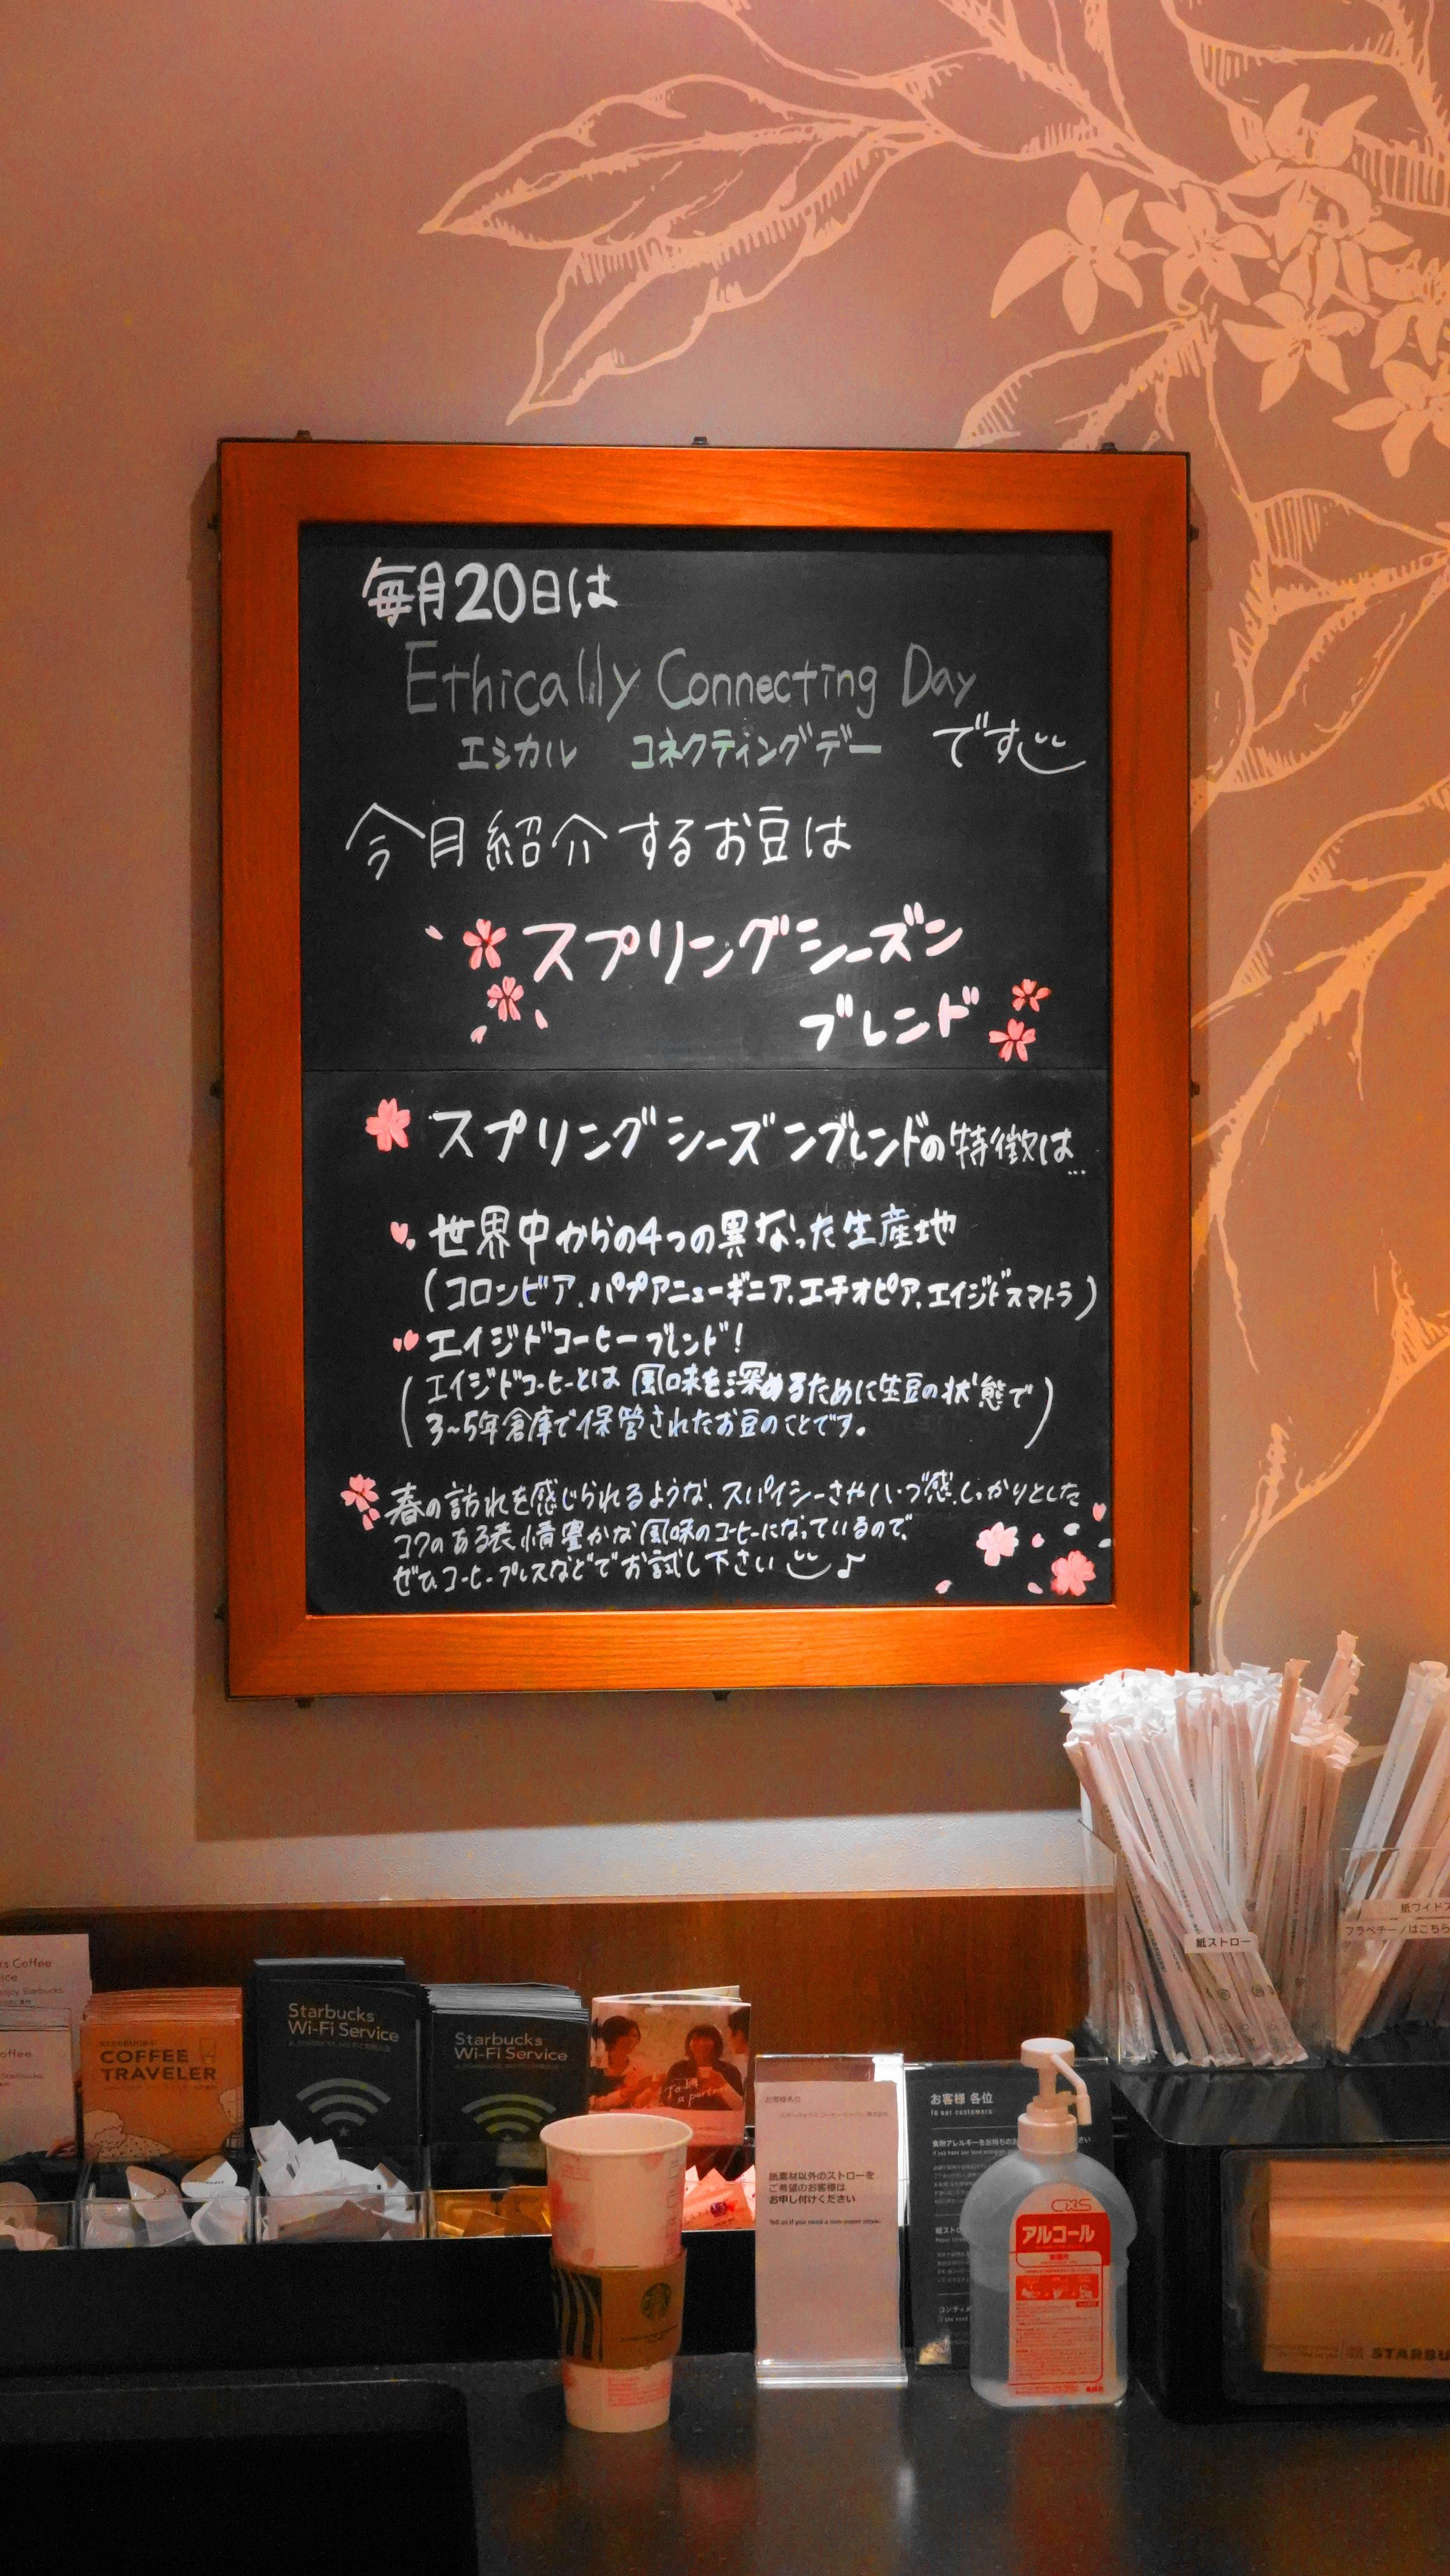 毎月20日は
Ethically Connecting Day
エシカル コネクティングデー です
今月紹介するお豆は
スプリングシーズン
ブレンド
スプリングシーズンブレンドの特徴は…
世界中からの4つの異なった生産地
(コロンビア、パプアニューギニア、エチオピア、エイジドスマトラ)
エイジドコーヒーブレンド!
(エイジドコーヒーとは風味を深めるために生豆の状態で
3~5年倉庫で保管されたお豆のことです。)
春の訪れを感じられるような、スパイシーさやハーブ感、しっかりとした
コクのある表情豊かな風味のコーヒーになっているので、
ぜひコーヒープレスなどでお試し下さい♪
紙ストロー
紙ワイドス
フラペチーノはこちら
ks Coffee
COFFEE
TRAVELER
Starbucks
Wi-Fi Service
Starbucks
Wi-Fi Service
To be
a partner
お客様各位
紙素材以外のストローを
ご希望のお客様は
お申し付けください
Tell us if you need a non-paper straw.
お客様 各位
To our customers
CxS
アルコール
STARBU